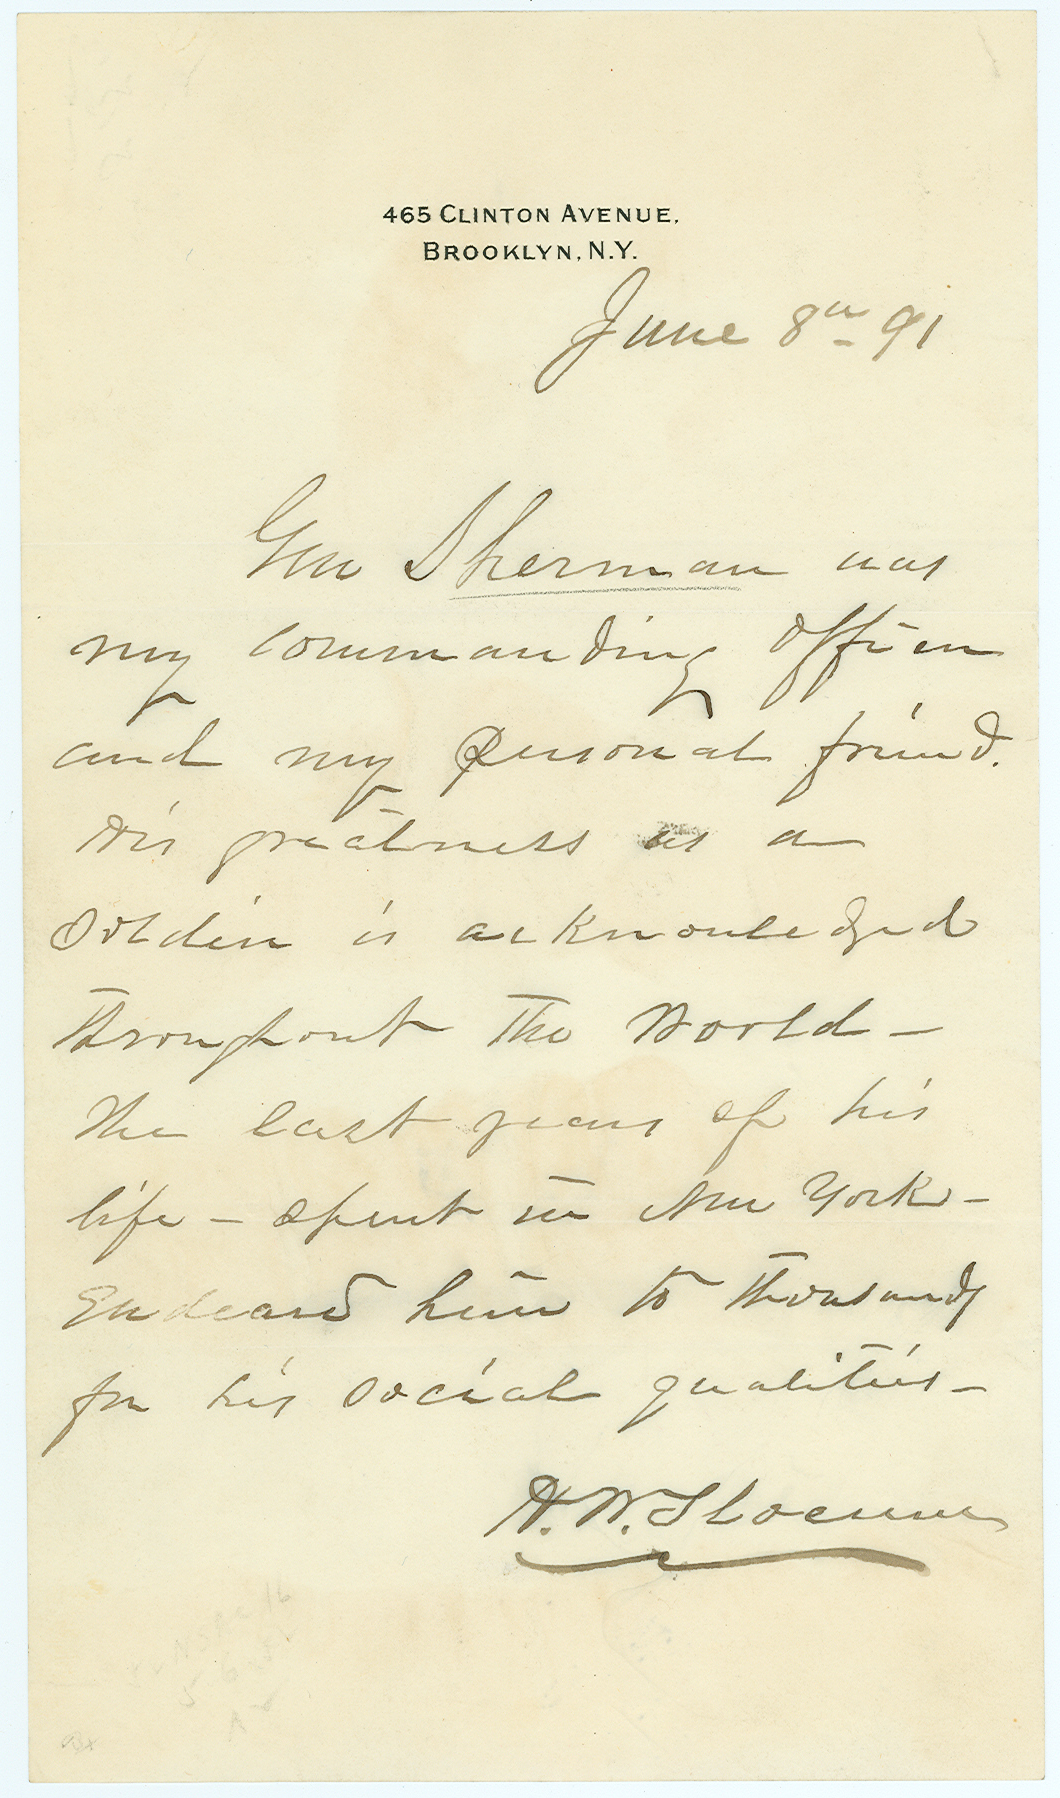 465 CLINTON AVENUE.
BROOKLYN, N.Y.
June 8th 91
Gen Sherman was
my commanding officer
and my personal friend.
His greatness as a
Soldier is acknowledged
throughout the World –
The last years of his
life – spent in New York –
Endeared him to thousands
for his social qualities –
H. W. Slocum